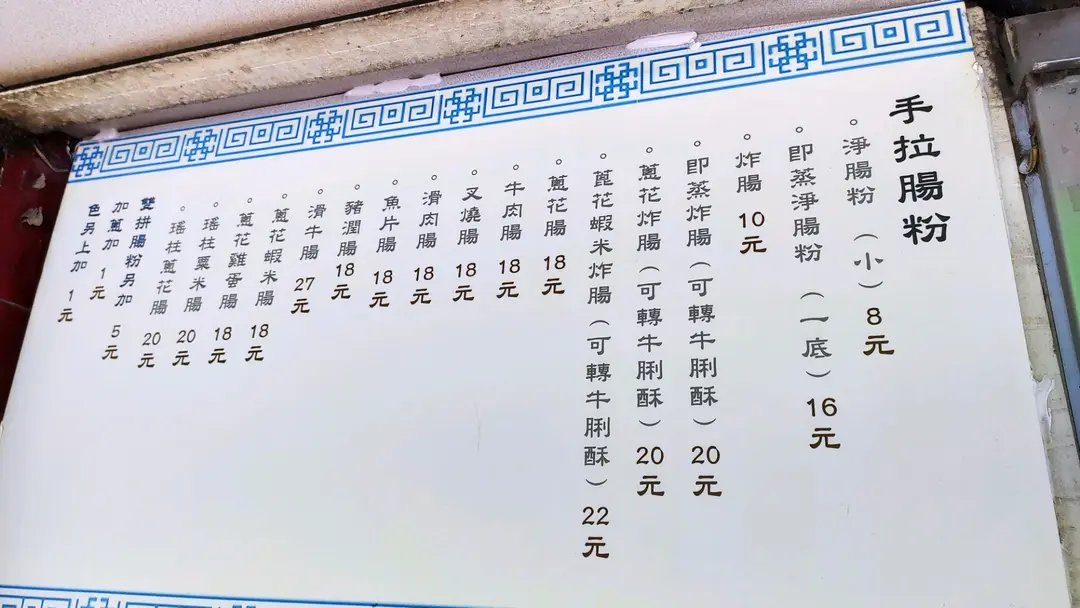 手拉腸粉
。淨腸粉（小）8元
。即蒸淨腸粉（一底）16元
。炸腸 10元
。即蒸炸腸（可轉牛脷酥）20元
。蔥花炸腸（可轉牛脷酥）20元
。蔥花蝦米炸腸（可轉牛脷酥）22元
。蔥花腸 18元
。牛肉腸 18元
。叉燒腸 18元
。滑肉腸 18元
。魚片腸 18元
。豬潤腸 18元
。滑牛腸 27元
。蔥花蝦米腸 18元
。蔥花雞蛋腸 18元
。瑤柱粟米腸 20元
。瑤柱蔥花腸 20元
雙拼腸粉另加 5元
加蔥加 1元
色另上加 1元